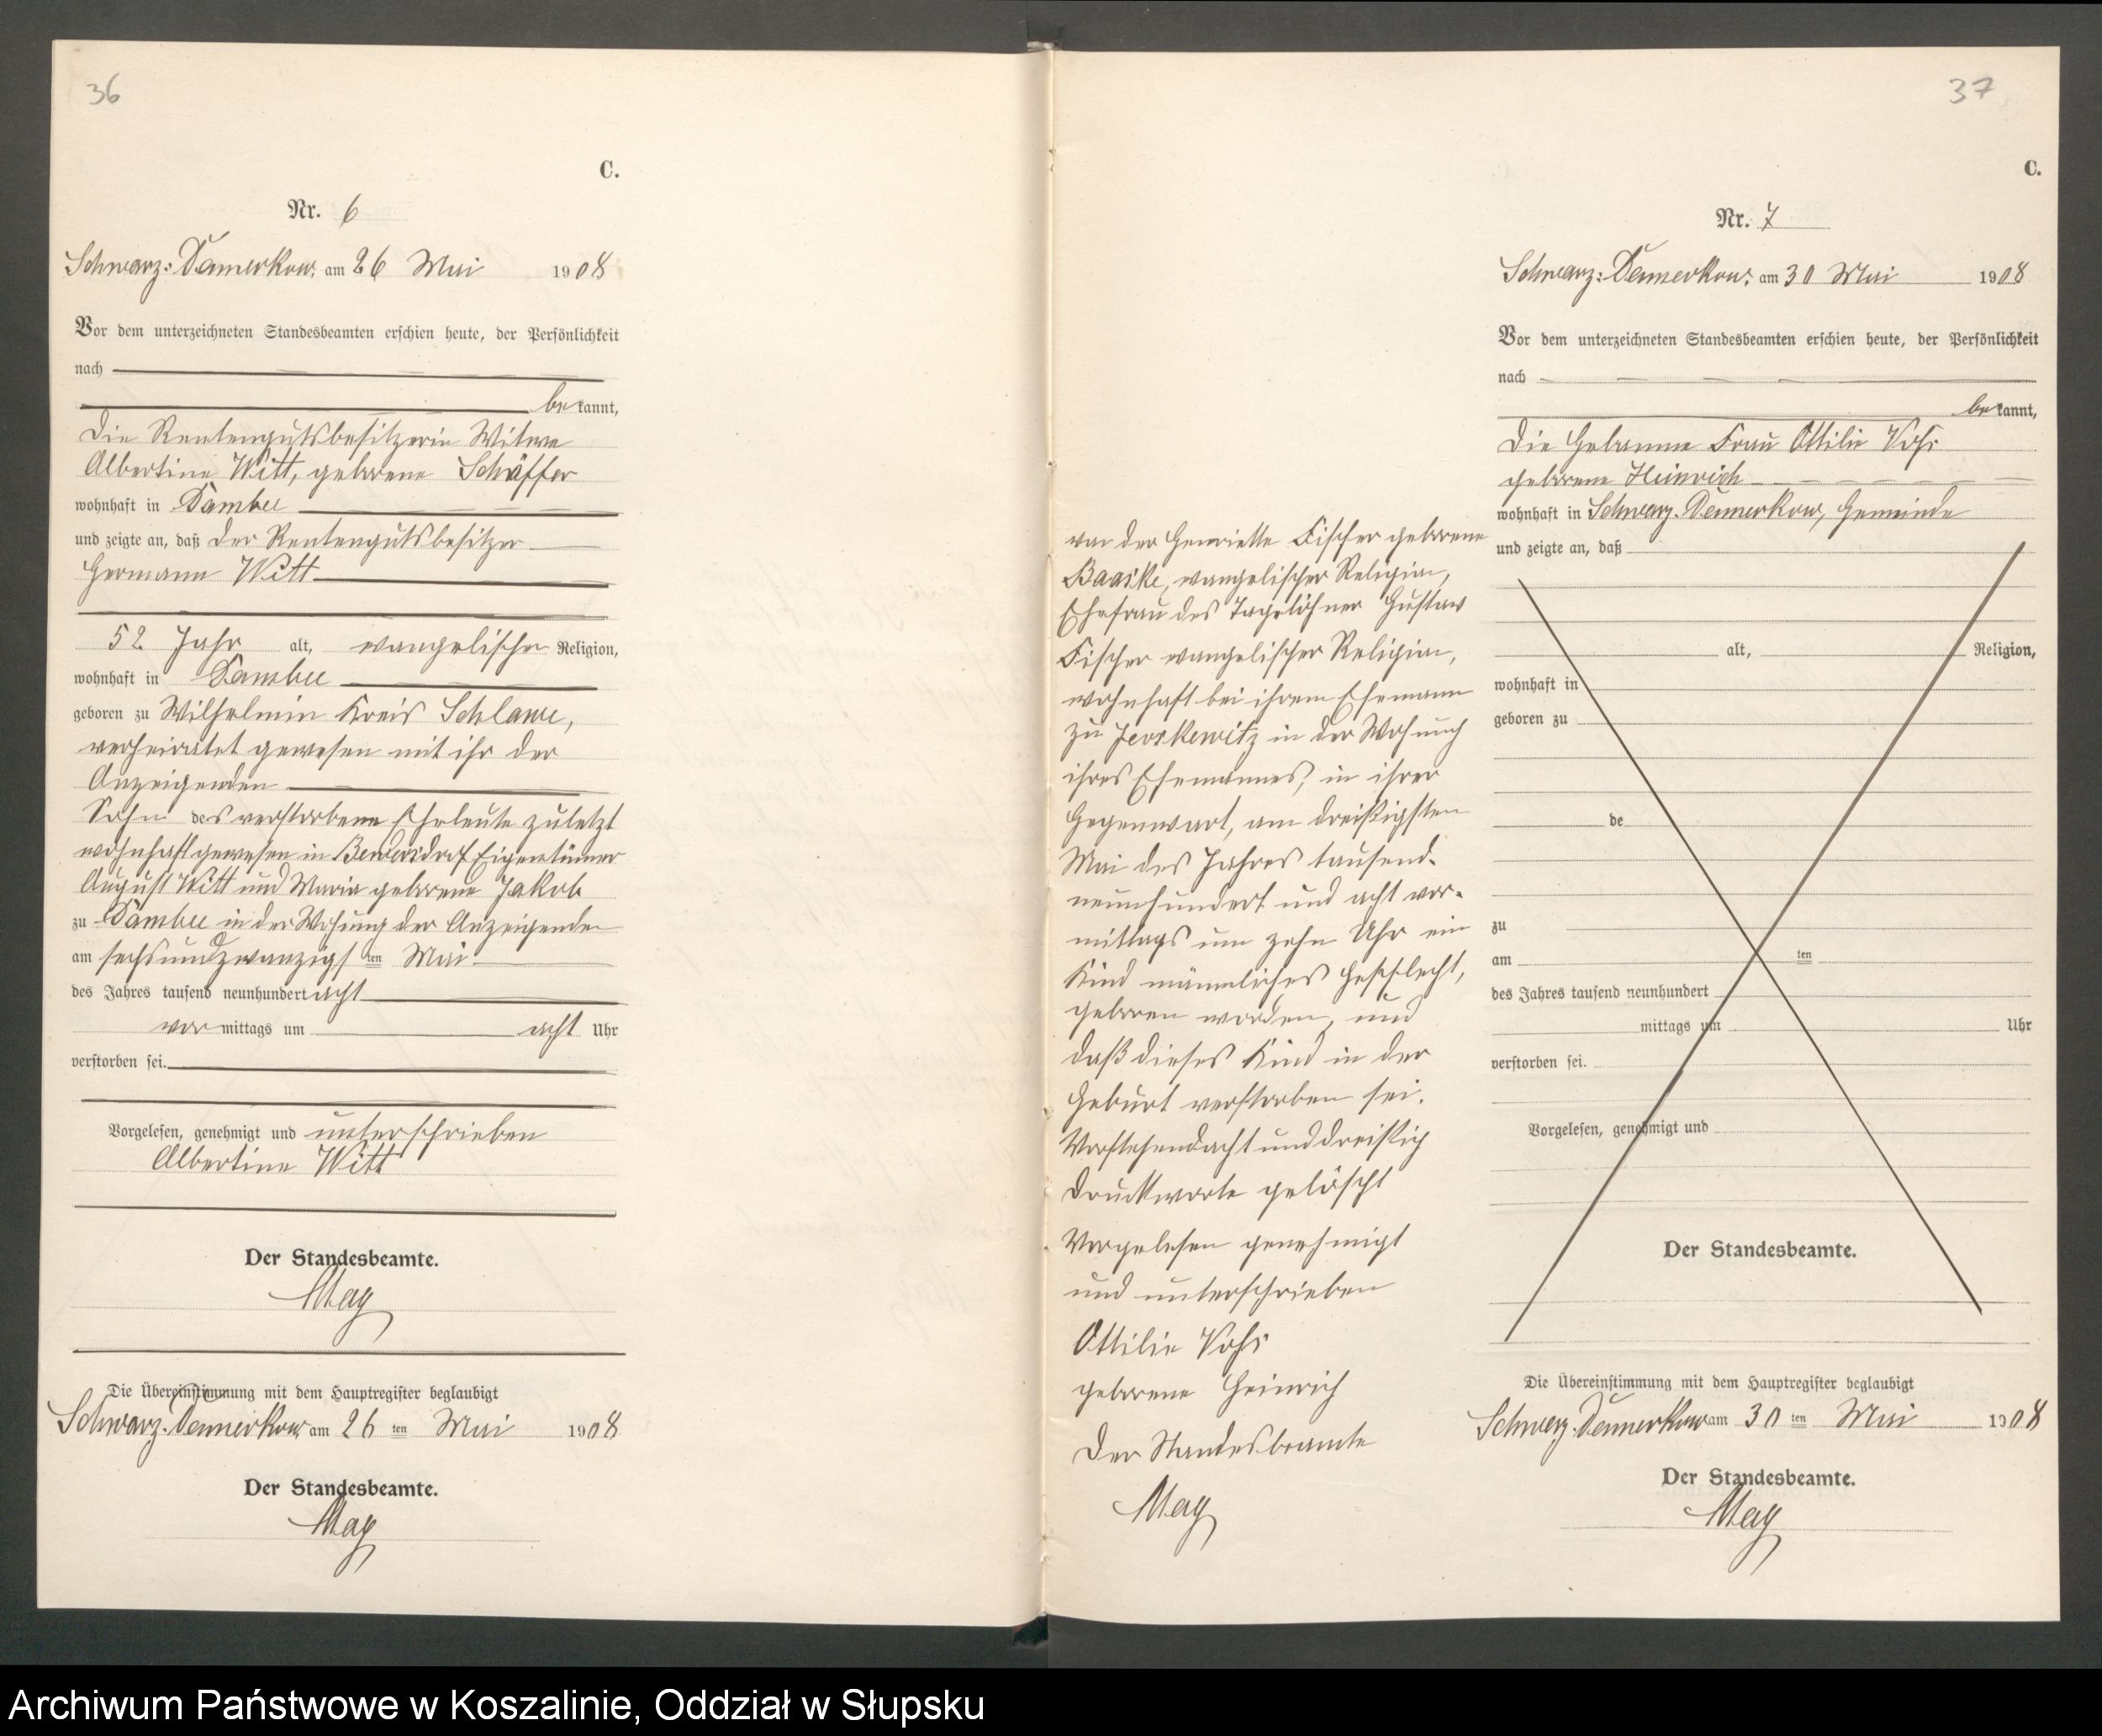 36
C.
Nr. 6
Schwarz-Damerkow, am 26 Mai 1908
Vor dem unterzeichneten Standesbeamten erschien heute, der Persönlichkeit
nach
be kannt,
die Rentengutsbesitzerin Witwe
Albertine Witt, geborene Schäffer
wohnhaft in Dambee
und zeigte an, daß der Rentengutsbesitzer
Hermann Witt
52 Jahr alt, evangelischer Religion,
wohnhaft in Dambee
geboren zu Wilhelmin Kreis Schlawe,
verheiratet gewesen mit ihr der
Anzeigenden
Sohn des verstorbenen Eheleute zuletzt
wohnhaft gewesen in Eigentümer
August Witt und Maria geborene Jakob
zu Dambee in der Wohung der Anzeigenden
am sechsundzwanzigs ten Mai
des Jahres tausend neunhundert acht
vor mittags um acht Uhr
verstorben sei.
Vorgelesen, genehmigt und unterschrieben
Albertine Witt
Der Standesbeamte.
May
Die Übereinstimmung mit dem Hauptregister beglaubigt
Schwarz-Damerkow am 26 ten Mai 1908
Der Standesbeamte.
May
37
C.
Nr. 7
Schwarz-Damerkow, am 30 Mai 1908
Vor dem unterzeichneten Standesbeamten erschien heute, der Persönlichkeit
nach
be kannt,
die Hebamme Frau Ottilie Vohs
geborene Heinrich
wohnhaft in Schwarz-Damerkow, Gemeinde
und zeigte an, daß
alt, Religion,
wohnhaft in
geboren zu
de
zu
am ten
des Jahres tausend neunhundert
mittags um Uhr
verstorben sei.
Vorgelesen, genehmigt und
Der Standesbeamte.
Die Übereinstimmung mit dem Hauptregister beglaubigt
Schwarz-Damerkow am 30 ten Mai 1908
Der Standesbeamte.
May
von der Henriette Fischer geborene
Baaske, evangelischer Religion,
Ehefrau des Tagelöhner Gustav
Fischer evangelischer Religion,
wohnhaft bei ihrem Ehemann
zu Jerskewitz in der Wohnung
ihres Ehemannes, in ihrer
Gegenwart, am dreißigsten
Mai des Jahres tausend-
neunhundert und acht vor-
mittags um zehn Uhr ein
Kind männliches Geschlecht,
geboren worden, und
daß dieses Kind in der
Geburt verstorben sei.
Vorstehend acht und dreißig
Druckworte gelöscht
Vorgelesen genehmigt
und unterschrieben
Ottilie Vohs
geborene Heinrich
Der Standesbeamte
May
Archiwum Państwowe w Koszalinie, Oddział w Słupsku